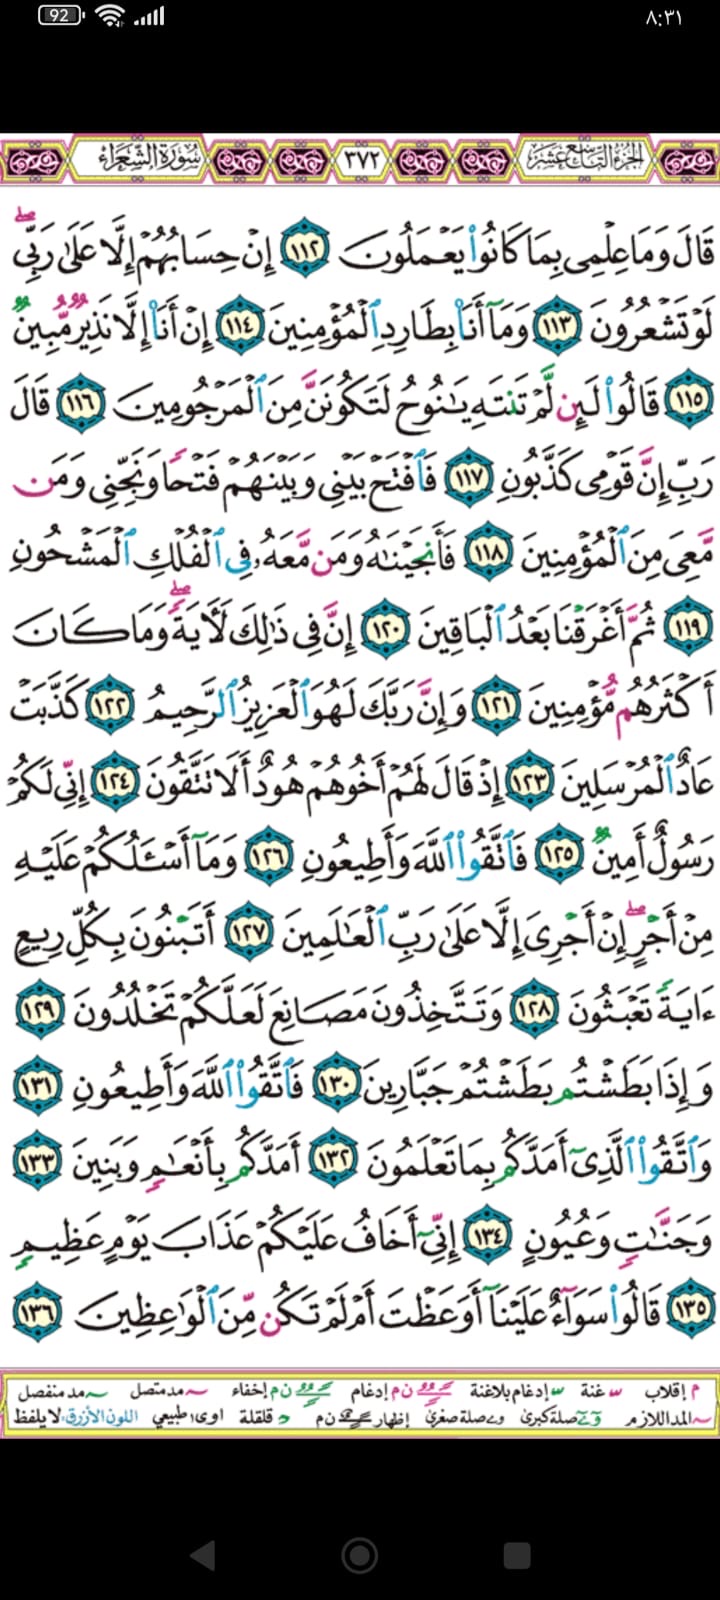 92
٨:٣١
الجزء التاسع عشر ٣٧٢ سورة الشعراء
قَالَ وَمَا عِلْمِى بِمَا كَانُوا۟ يَعْمَلُونَ ١١٢ إِنْ حِسَابُهُمْ إِلَّا عَلَىٰ رَبِّى ۖ
لَوْ تَشْعُرُونَ ١١٣ وَمَآ أَنَا۠ بِطَارِدِ ٱلْمُؤْمِنِينَ ١١٤ إِنْ أَنَا۠ إِلَّا نَذِيرٌ مُّبِينٌ
١١٥ قَالُوا۟ لَئِن لَّمْ تَنتَهِ يَـٰنُوحُ لَتَكُونَنَّ مِنَ ٱلْمَرْجُومِينَ ١١٦ قَالَ
رَبِّ إِنَّ قَوْمِى كَذَّبُونِ ١١٧ فَٱفْتَحْ بَيْنِى وَبَيْنَهُمْ فَتْحًا وَنَجِّنِى وَمَن
مَّعِىَ مِنَ ٱلْمُؤْمِنِينَ ١١٨ فَأَنجَيْنَـٰهُ وَمَن مَّعَهُۥ فِى ٱلْفُلْكِ ٱلْمَشْحُونِ
١١٩ ثُمَّ أَغْرَقْنَا بَعْدُ ٱلْبَاقِينَ ١٢٠ إِنَّ فِى ذَٰلِكَ لَـَٔايَةً ۖ وَمَا كَانَ
أَكْثَرُهُم مُّؤْمِنِينَ ١٢١ وَإِنَّ رَبَّكَ لَهُوَ ٱلْعَزِيزُ ٱلرَّحِيمُ ١٢٢ كَذَّبَتْ
عَادٌ ٱلْمُرْسَلِينَ ١٢٣ إِذْ قَالَ لَهُمْ أَخُوهُمْ هُودٌ أَلَا تَتَّقُونَ ١٢٤ إِنِّى لَكُمْ
رَسُولٌ أَمِينٌ ١٢٥ فَٱتَّقُوا۟ ٱللَّهَ وَأَطِيعُونِ ١٢٦ وَمَآ أَسْـَٔلُكُمْ عَلَيْهِ
مِنْ أَجْرٍ ۖ إِنْ أَجْرِىَ إِلَّا عَلَىٰ رَبِّ ٱلْعَـٰلَمِينَ ١٢٧ أَتَبْنُونَ بِكُلِّ رِيعٍ
ءَايَةً تَعْبَثُونَ ١٢٨ وَتَتَّخِذُونَ مَصَانِعَ لَعَلَّكُمْ تَخْلُدُونَ ١٢٩
وَإِذَا بَطَشْتُم بَطَشْتُمْ جَبَّارِينَ ١٣٠ فَٱتَّقُوا۟ ٱللَّهَ وَأَطِيعُونِ ١٣١
وَٱتَّقُوا۟ ٱلَّذِىٓ أَمَدَّكُم بِمَا تَعْلَمُونَ ١٣٢ أَمَدَّكُم بِأَنْعَـٰمٍ وَبَنِينَ ١٣٣
وَجَنَّـٰتٍ وَعُيُونٍ ١٣٤ إِنِّىٓ أَخَافُ عَلَيْكُمْ عَذَابَ يَوْمٍ عَظِيمٍ
١٣٥ قَالُوا۟ سَوَآءٌ عَلَيْنَآ أَوَعَظْتَ أَمْ لَمْ تَكُن مِّنَ ٱلْوَٰعِظِينَ ١٣٦
م إقلاب غنة إدغام بلاغنة ن م إدغام ن م إخفاء مد متصل مد منفصل
المد اللازم صلة كبرى صلة صغرى إظهار ن م قلقلة اوى طبيعي اللون الأزرق لا يلفظ